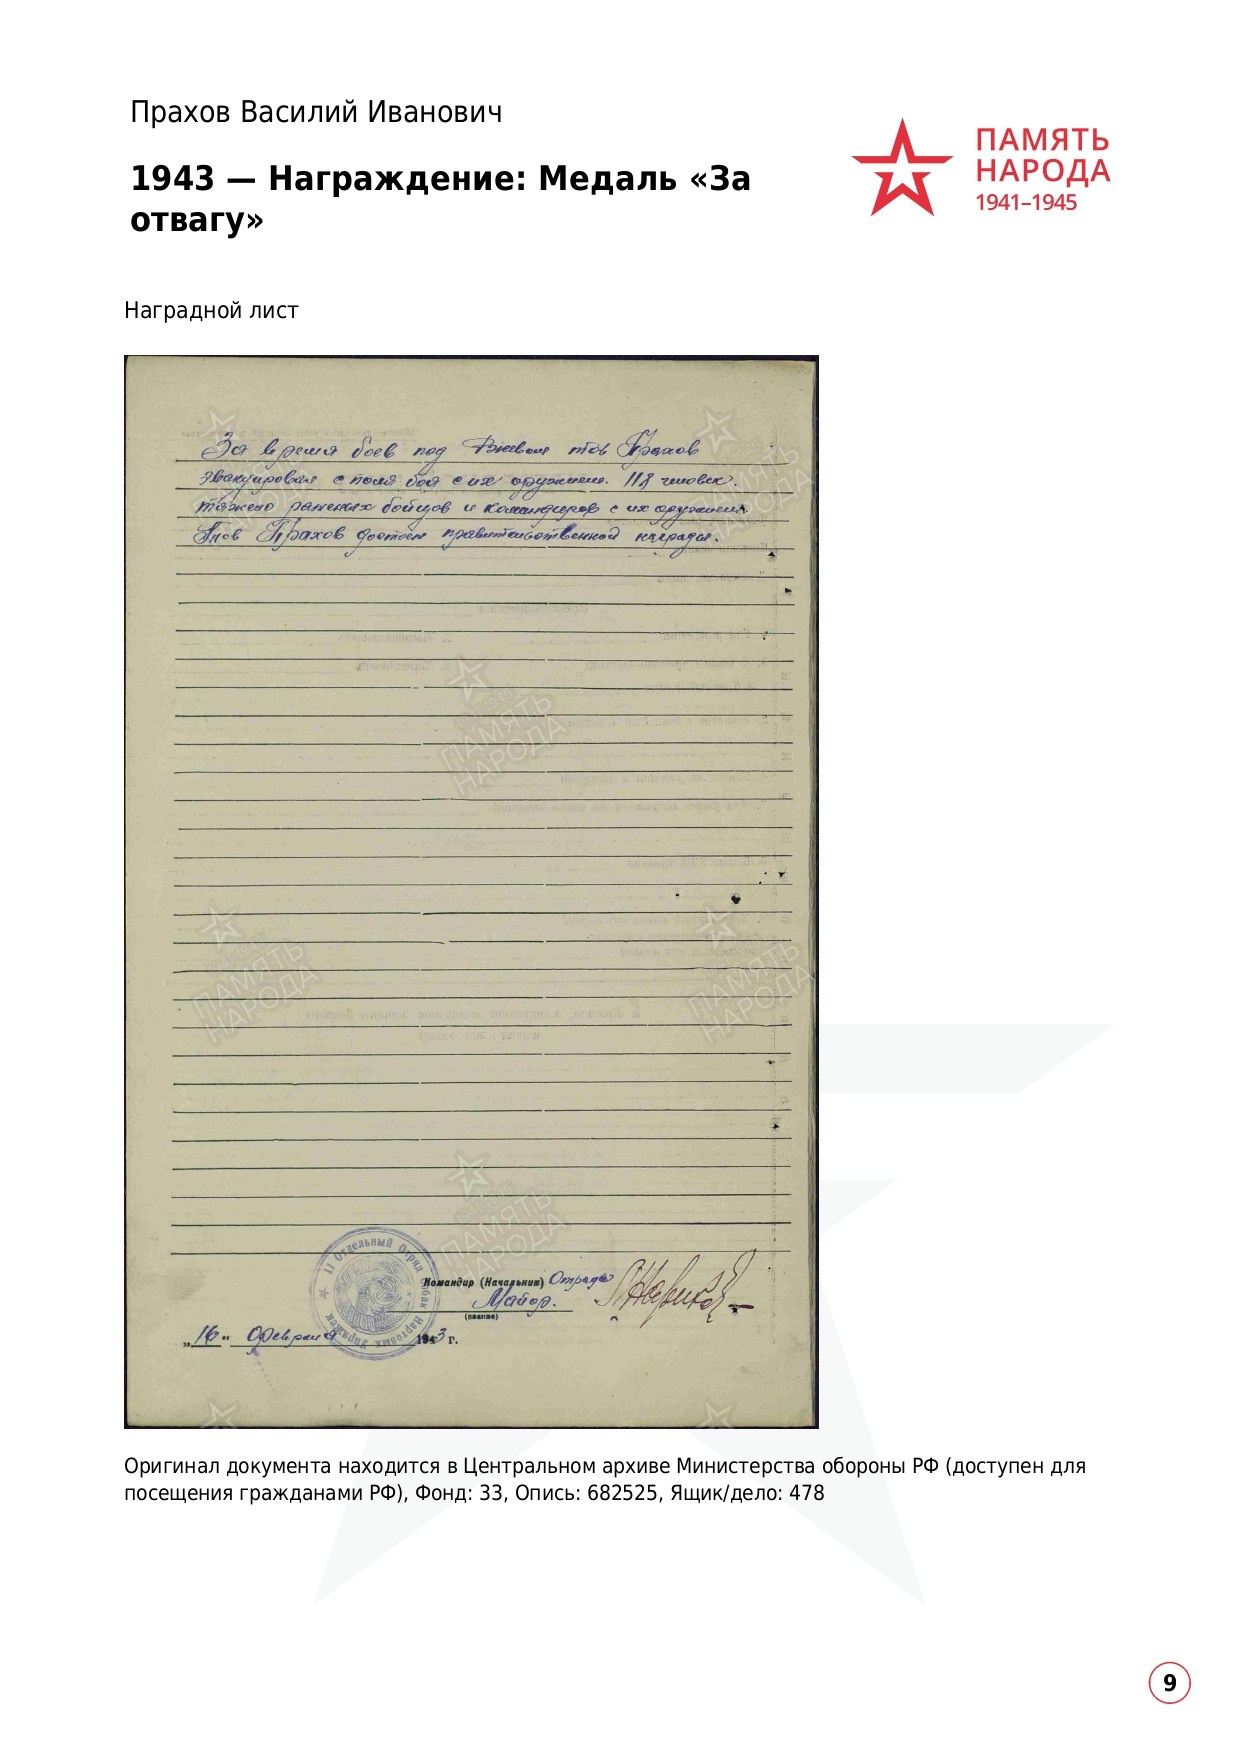 Прахов Василий Иванович
1943 — Награждение: Медаль «За
отвагу»
ПАМЯТЬ
НАРОДА
1941–1945
Наградной лист
За время боев под Ржевом тов Прахов
эвакуировал с поля боя с их оружием. 118 человек.
тяжело раненых бойцов и командиров с их оружием.
Тов Прахов достоин правительственной награды.
ПАМЯТЬ
НАРОДА
ПАМЯТЬ
НАРОДА
ПАМЯТЬ
НАРОДА
ПАМЯТЬ
НАРОДА
11 Отдельный Отряд Собак Нартовых Упряжек
Командир (Начальник) Отряда
Майор.
(звание)
„16" Февраля 1943 г.
Оригинал документа находится в Центральном архиве Министерства обороны РФ (доступен для
посещения гражданами РФ), Фонд: 33, Опись: 682525, Ящик/дело: 478
9